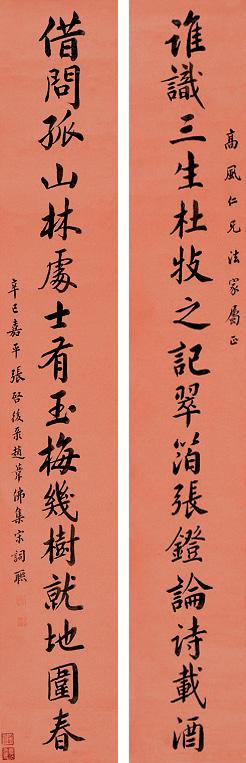 高風仁兄法家屬正
誰識三生杜牧之記翠箔張鐙論詩載酒
借問孤山林處士有玉梅幾樹就地圍春
辛巳嘉平張啓後录趙葦佛集宋詞聯